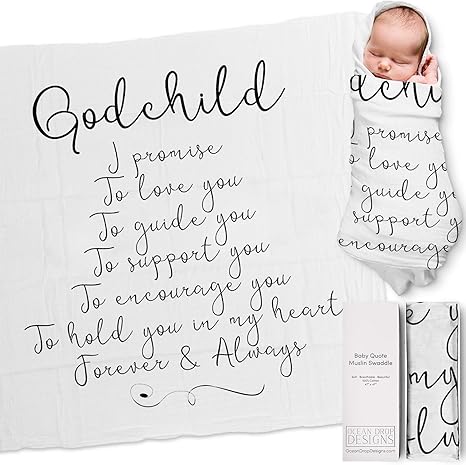 Godchild
I promise
To love you
To guide you
To support you
To encourage you
To hold you in my heart
Forever & Always
dchild
I promise
To love you
To guide you
To support you
encourage
Baby Quote
Muslin Swaddle
Soft · Breathable · Beautiful
100% Cotton
47" x 47"
OCEAN DROP
DESIGNS
OceanDropDesigns.com
my